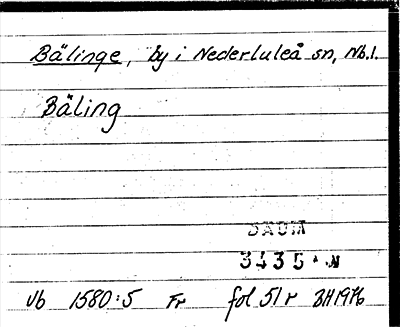 Bälinge, by i Nederluleå sn, Nb.l.
Bäling
DAUM
3435 . N
Vb 1580:5 Fr fol 51 r BH1976